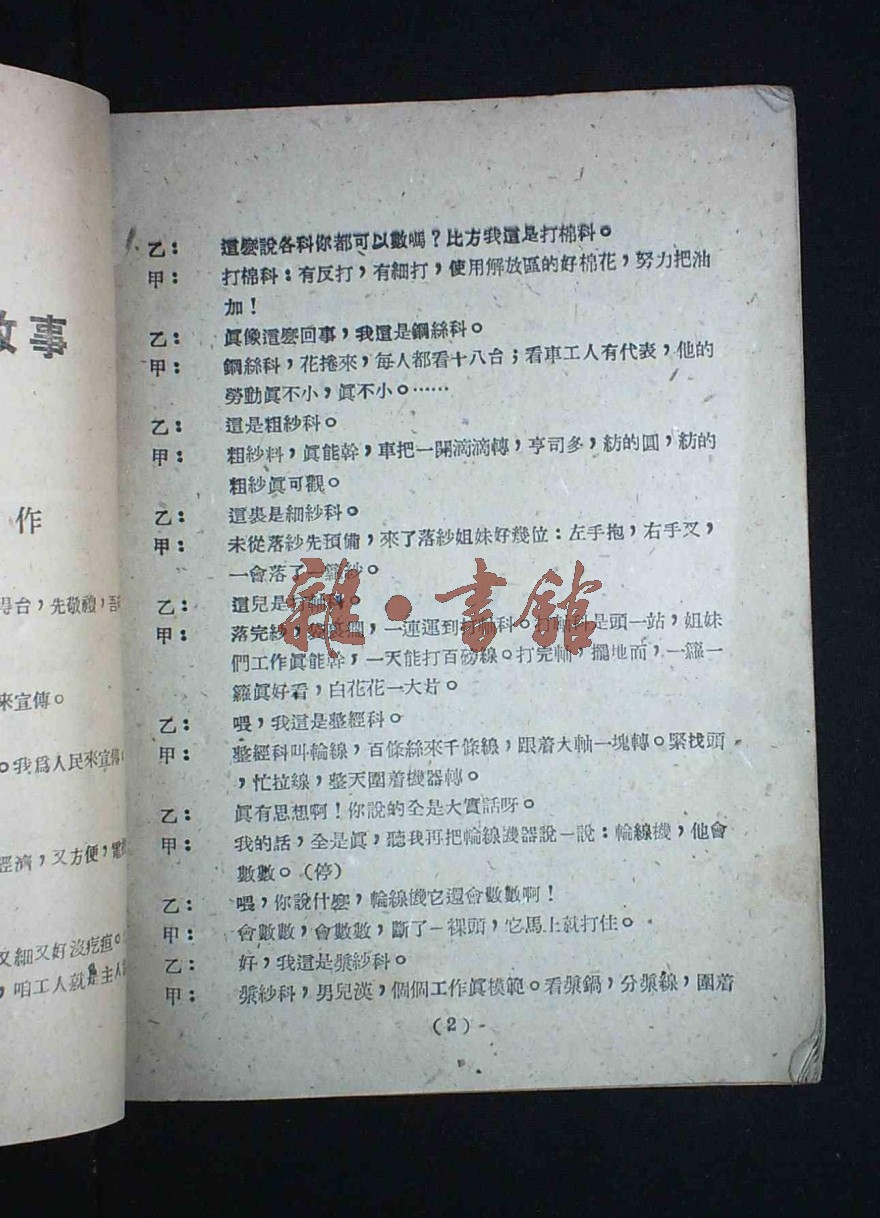 乙：　這麽說各科你都可以數嗎？比方我這是打棉科。
甲：　打棉科：有反打，有細打，使用解放區的好棉花，努力把油
加！
乙：　眞像這麽回事，我這是鋼絲科。
甲：　鋼絲科，花捲來，每人都看十八台；看車工人有代表，他的
勞動眞不小，眞不小。……
乙：　這是粗紗科。
甲：　粗紗料，眞能幹，車把一開滴滴轉，亨司多，紡的圓，紡的
粗紗眞可觀。
乙：　這裏是細紗科。
甲：　未從落紗先預備，來了落紗姐妹好幾位：左手抱，右手叉，
一會落了一籮紗。
乙：　這兒是打軸科。
甲：　落完紗，一連運到打軸科。打軸科是頭一站，姐妹
們工作眞能幹，一天能打百磅線。打完軸，擺地面，一籮一
籮眞好看，白花花一大片。
乙：　喂，我這是整經科。
甲：　整經科叫輪線，百條絲來千條線，跟着大軸一塊轉。緊找頭
，忙拉線，整天圍着機器轉。
乙：　眞有思想啊！你說的全是大實話呀。
甲：　我的話，全是眞，聽我再把輪線機器說一說：輪線機，他會
數數。（停）
乙：　喂，你說什麽，輪線機它還會數數啊！
甲：　會數數，會數數，斷了一裸頭，它馬上就打住。
乙：　好，我這是漿紗科。
甲：　漿紗科，男兒漢，個個工作眞模範。看漿鍋，分漿線，圍着
（2）
故事
作
得台，先敬禮，
來宣傳。
。我爲人民來宣傳
經濟，又方便，
又細又好沒疙疸。
，咱工人就是主人
雜・書館